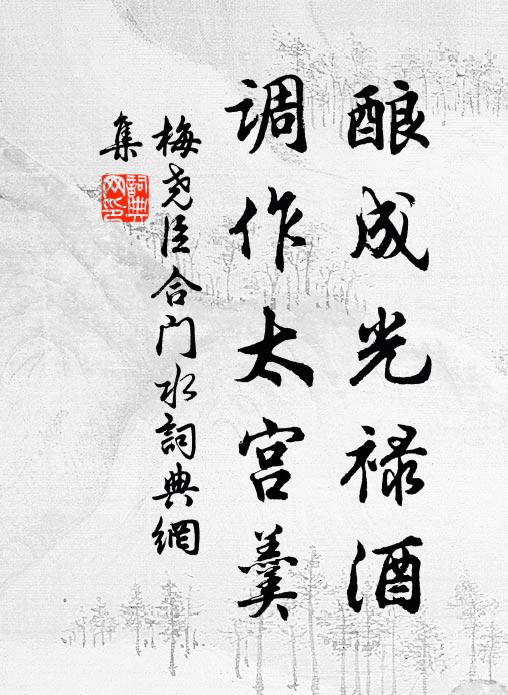 酿成光禄酒
调作太宫羹
梅尧臣合门水詞典網
集
詞典网印